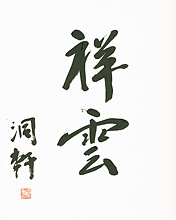 祥雲
洞軒